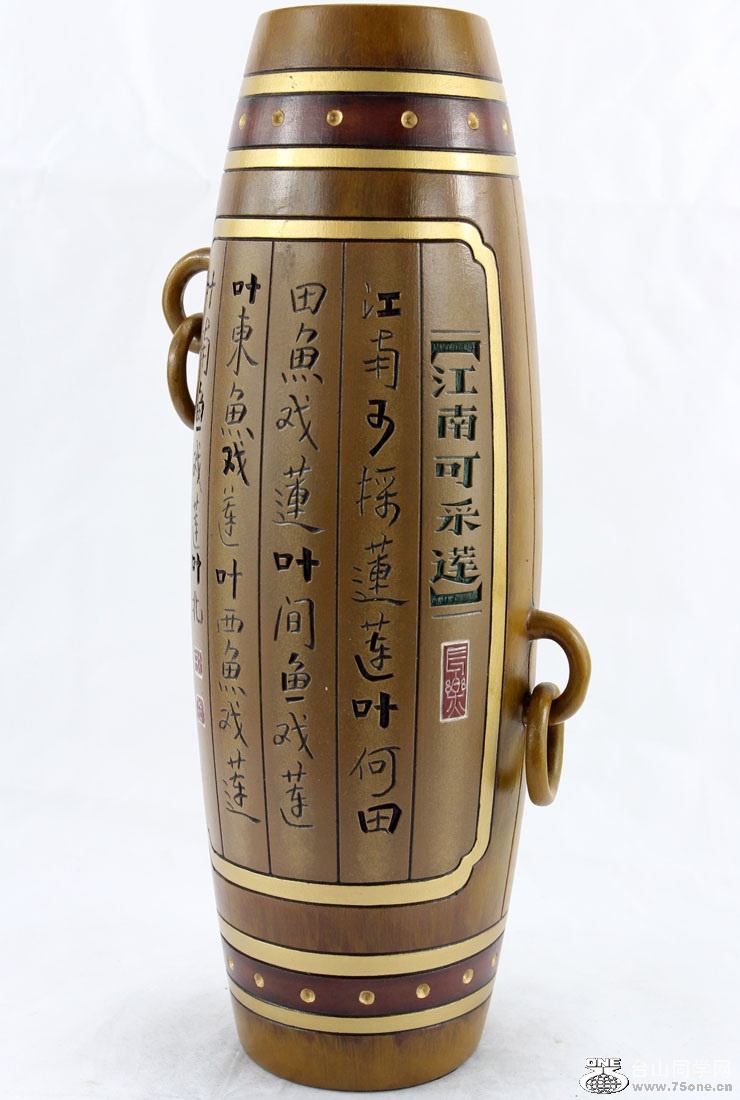 【江南可采莲】
江南可採蓮莲叶何田
田魚戏蓮叶间鱼戏莲
叶東魚戏莲叶西魚戏莲
叶南鱼戏莲叶北
ONE
台山同学网
www.75one.cn